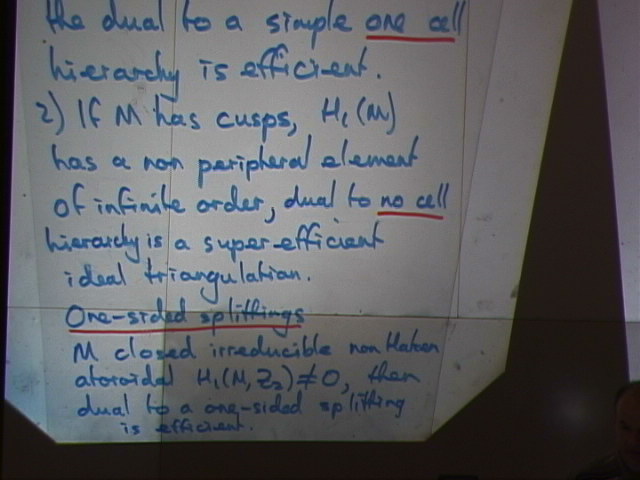 the dual to a simple one cell
hierarchy is efficient.
2) If M has cusps, H₁(M)
has a non peripheral element
of infinite order, dual to no cell
hierarchy is a super-efficient
ideal triangulation.
One-sided splittings
M closed irreducible non Haken
atoroidal H₁(M, Z₂) ≠ 0, then
dual to a one-sided splitting
is efficient.